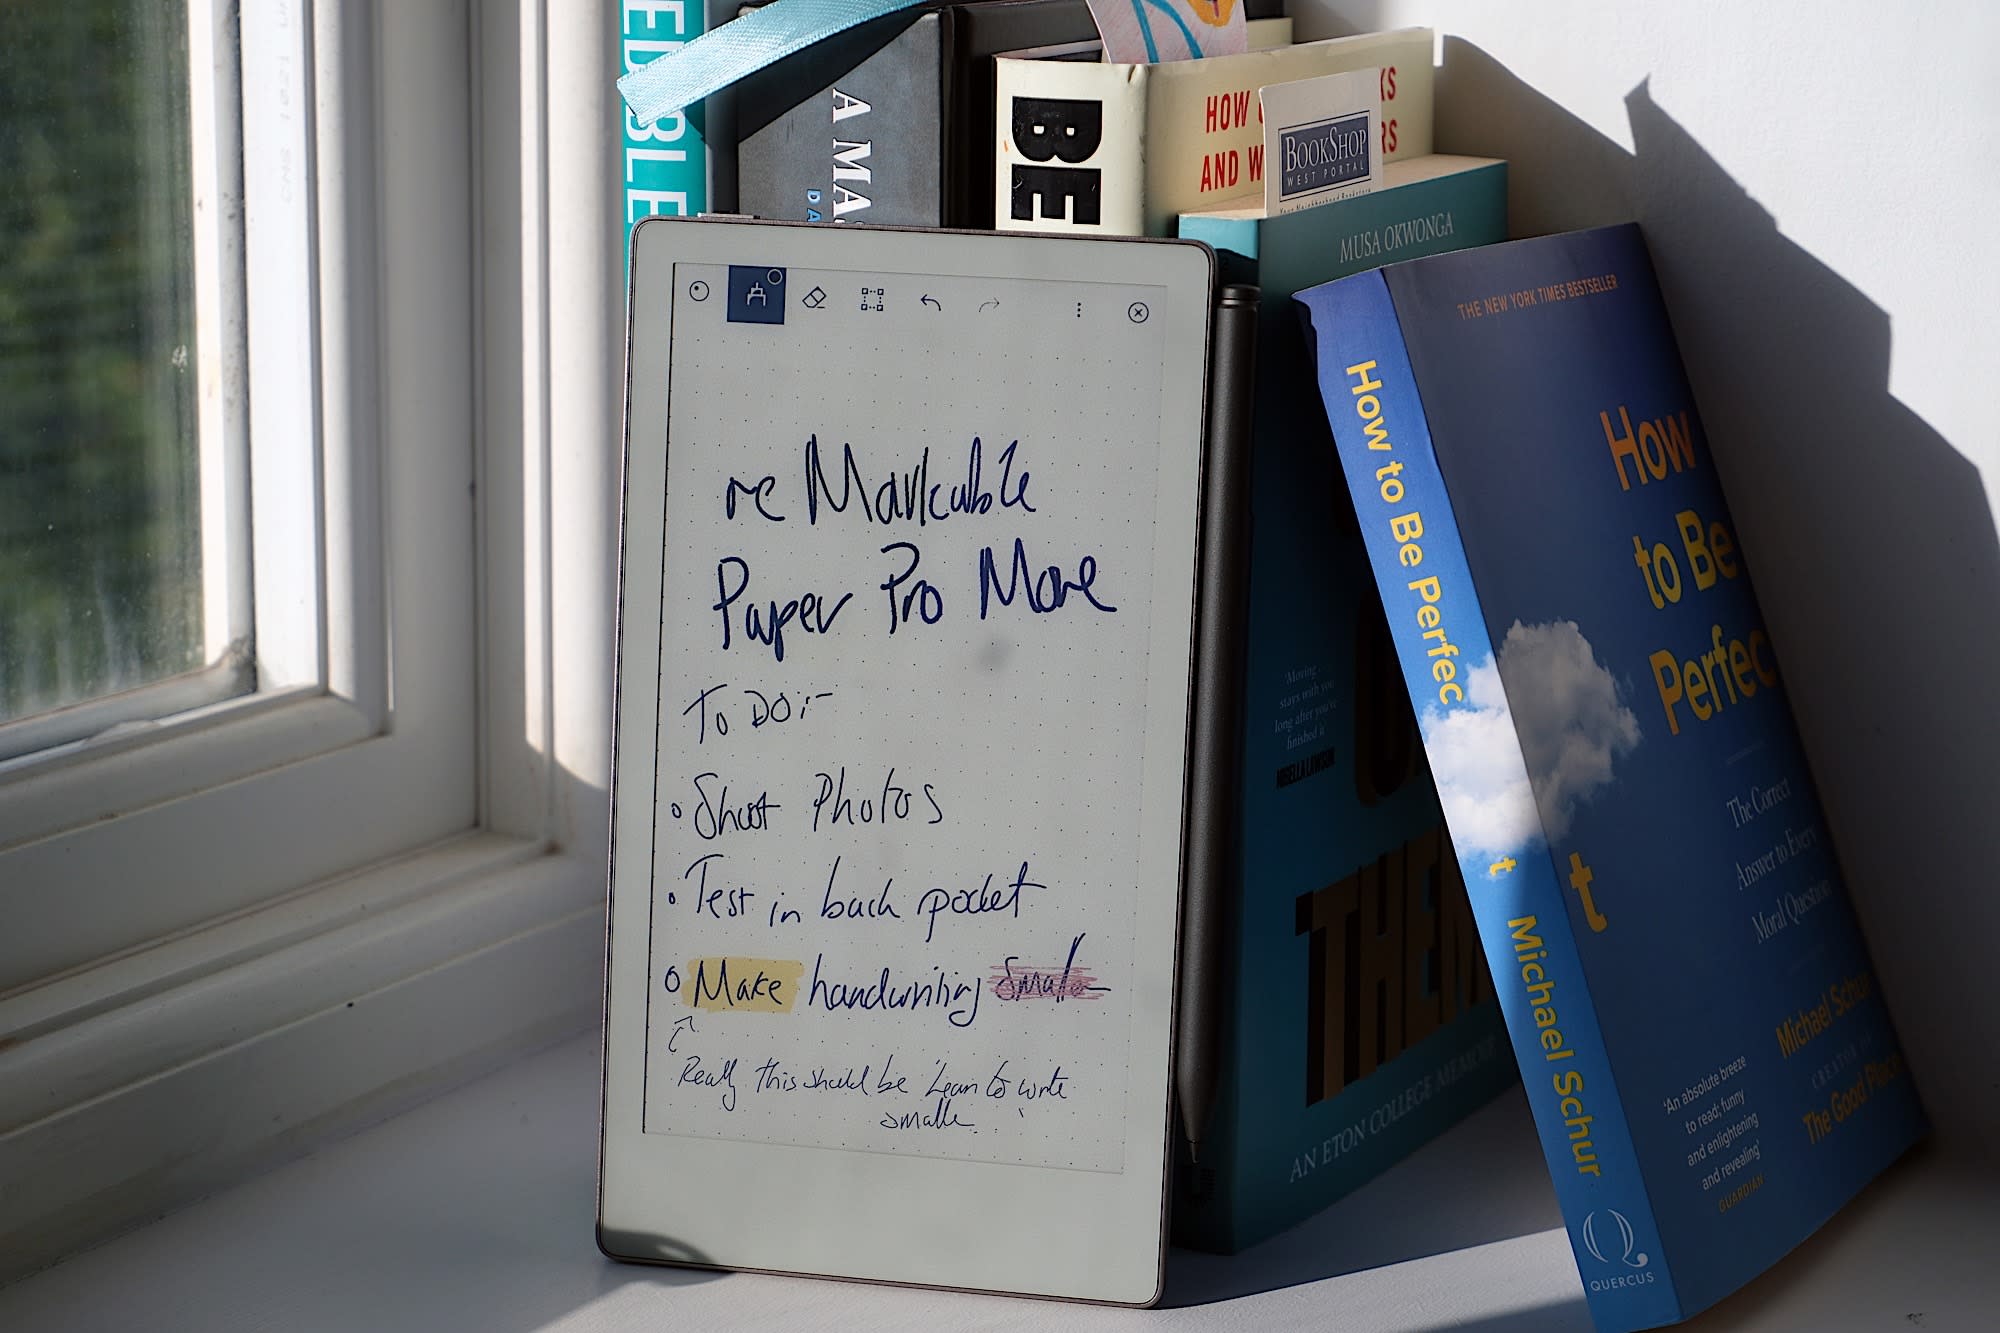 EDIBLE
A MA
DA
BE
HOW
KS
AND W
RS
BOOKSHOP
WEST PORTAL
Your Neighborhood Bookstore
MUSA OKWONGA
'Moving
stays with you
long after you've
finished it'
NIGELLA LAWSON
THEM
AN ETON COLLEGE MEMOIR
re Markable
Paper Pro Move
To Do:-
Shoot Photos
Test in back pocket
Make handwriting smaller
Really this should be 'Learn to write
smaller'
How to Be Perfect
Michael Schur
QUERCUS
THE NEW YORK TIMES BESTSELLER
How
to Be
Perfec
t
The Correct
Answer to Every
Moral Question
Michael Schur
CREATOR OF
The Good Place
'An absolute breeze
to read; funny
and enlightening
and revealing'
GUARDIAN